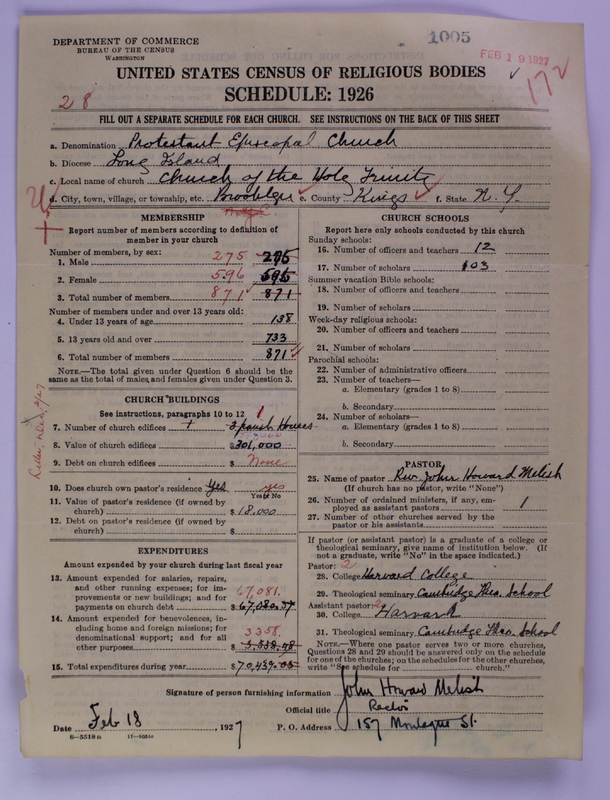 DEPARTMENT OF COMMERCE
BUREAU OF THE CENSUS
WASHINGTON
1005
FEB 19 1927
172
UNITED STATES CENSUS OF RELIGIOUS BODIES
SCHEDULE: 1926
28
FILL OUT A SEPARATE SCHEDULE FOR EACH CHURCH. SEE INSTRUCTIONS ON THE BACK OF THIS SHEET
a. Denomination Protestant Episcopal Church
b. Diocese Long Island
c. Local name of church Church of the Holy Trinity
d. City, town, village, or township, etc. Brooklyn e. County Kings f. State N.Y.
MEMBERSHIP
Report number of members according to definition of member in your church
Number of members, by sex:
1. Male 275 275
2. Female 596 595
3. Total number of members 871 871
Number of members under and over 13 years old:
4. Under 13 years of age 138
5. 13 years old and over 733
6. Total number of members 871
NOTE.—The total given under Question 6 should be the same as the total of males and females given under Question 3.
CHURCH BUILDINGS
See instructions, paragraphs 10 to 12
7. Number of church edifices + 3 parish Houses
8. Value of church edifices $301,000
9. Debt on church edifices $ None
10. Does church own pastor's residence? Yes yes
Yes or No
11. Value of pastor's residence (if owned by church) $18,000
12. Debt on pastor's residence (if owned by church) $
EXPENDITURES
Amount expended by your church during last fiscal year
13. Amount expended for salaries, repairs, and other running expenses; for improvements or new buildings; and for payments on church debt 67,081. $67,080.57
14. Amount expended for benevolences, including home and foreign missions; for denominational support; and for all other purposes 3358. $3,358.48
15. Total expenditures during year $70,439.05
CHURCH SCHOOLS
Report here only schools conducted by this church
Sunday schools:
16. Number of officers and teachers 12
17. Number of scholars 103
Summer vacation Bible schools:
18. Number of officers and teachers
19. Number of scholars
Week-day religious schools:
20. Number of officers and teachers
21. Number of scholars
Parochial schools:
22. Number of administrative officers
23. Number of teachers—
a. Elementary (grades 1 to 8)
b. Secondary
24. Number of scholars—
a. Elementary (grades 1 to 8)
b. Secondary
PASTOR
25. Name of pastor Rev. John Howard Melish
(If church has no pastor, write "None")
26. Number of ordained ministers, if any, employed as assistant pastors 1
27. Number of other churches served by the pastor or his assistants
If pastor (or assistant pastor) is a graduate of a college or theological seminary, give name of institution below. (If not a graduate, write "No" in the space indicated.)
Pastor: 2
28. College Harvard College
29. Theological seminary Cambridge Theo. School
Assistant pastor: 2
30. College Harvard
31. Theological seminary Cambridge Theo. School
NOTE.—Where one pastor serves two or more churches, Questions 28 and 29 should be answered only on the schedule for one of the churches; on the schedules for the other churches, write "See schedule for church."
Signature of person furnishing information John Howard Melish
Official title Rector
Date Feb 18, 1927 P. O. Address 157 Montague St.
8—5518a